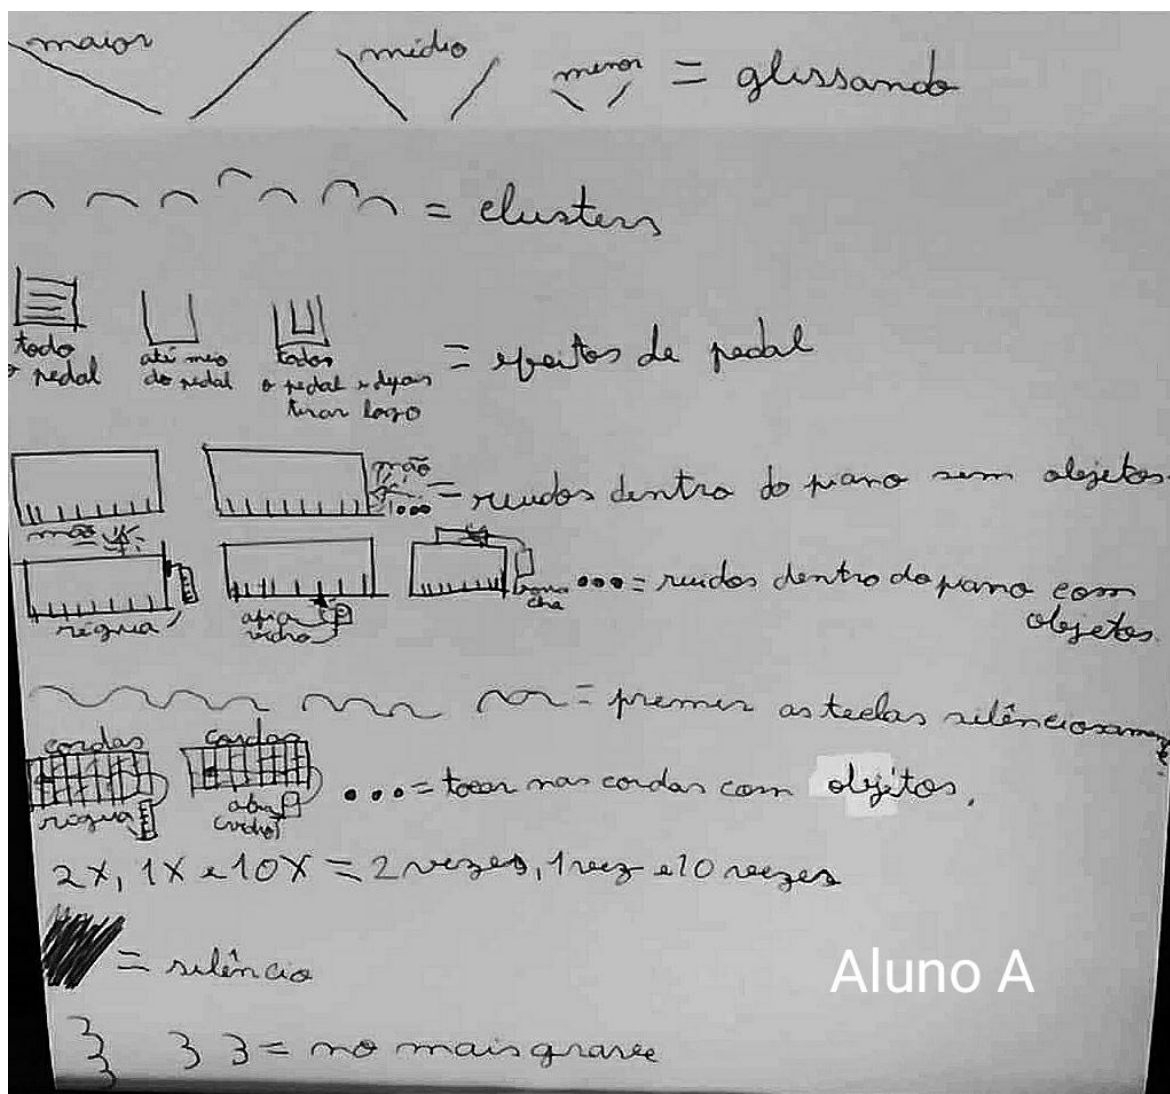 maior médio menor = glissando
= clusters
todo o pedal
até meio do pedal
todos o pedal e depois tirar logo
= efeitos de pedal
mão
= ruidos dentro do piano sem objetos
mão
régua
afia vidro
borracha
= ruidos dentro do piano com objetos.
= premir as teclas silênciosamente
cordas cordas
régua
... = tocar nas cordas com objetos.
2X, 1X e 10X = 2 vezes, 1 vez e 10 vezes
= silêncio
Aluno A
= no mais grave